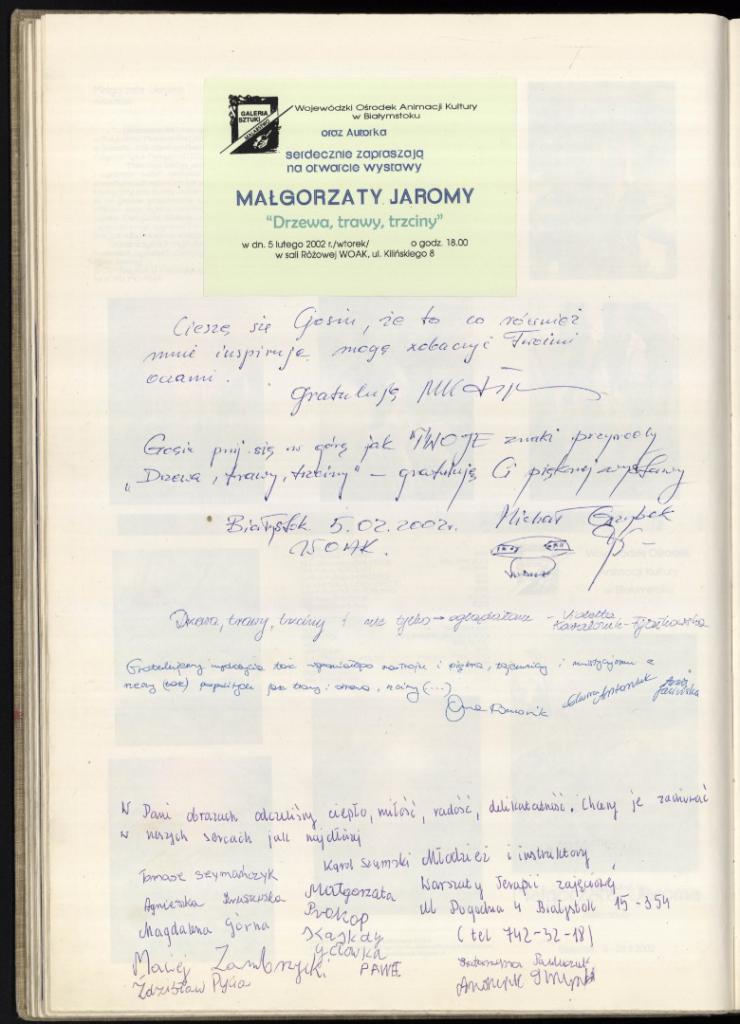 GALERIA
SZTUKI
Wojewódzki Ośrodek Animacji Kultury
w Białymstoku
oraz Autorka
serdecznie zapraszają
na otwarcie wystawy
MAŁGORZATY JAROMY
"Drzewa, trawy, trzciny"
w dn. 5 lutego 2002 r./wtorek/ o godz. 18.00
w sali Różowej WOAK, ul. Kilińskiego 8
Cieszę się Gosiu, że to co również
mnie inspiruje mogę zobaczyć Twoimi
oczami.
Gratuluję
Gosiu pnij się w górę jak TWOJE znaki przyrody
„Drzewa, trawy, trzciny" – gratuluję Ci pięknej wystawy
Białystok 5.02.2002r. Michał
WOAK.
Drzewa, trawy, trzciny i nie tylko → oglądałam - Violetta
Gratulujemy wydobycia tak wspaniałego nastroju i piękna, tajemnicy i mistycyzmu z
rzeczy (tak) pospolitych jak trawy i drzewa, trzciny (...)
W Pani obrazach odczuliśmy ciepło, miłość, radość, delikatność. Chcemy je zachować
w naszych sercach jak najdłużej
Tomasz Szymańczyk Karol Szumski Młodzież i instruktorzy
Agnieszka Małgorzata Warsztaty Terapii zajęciowej
Magdalena Górna Prokop ul Pogodna 4 Białystok 15-354
(tel 742-32-18)
Maciej Zambrzycki PAWEŁ
Zdzisław